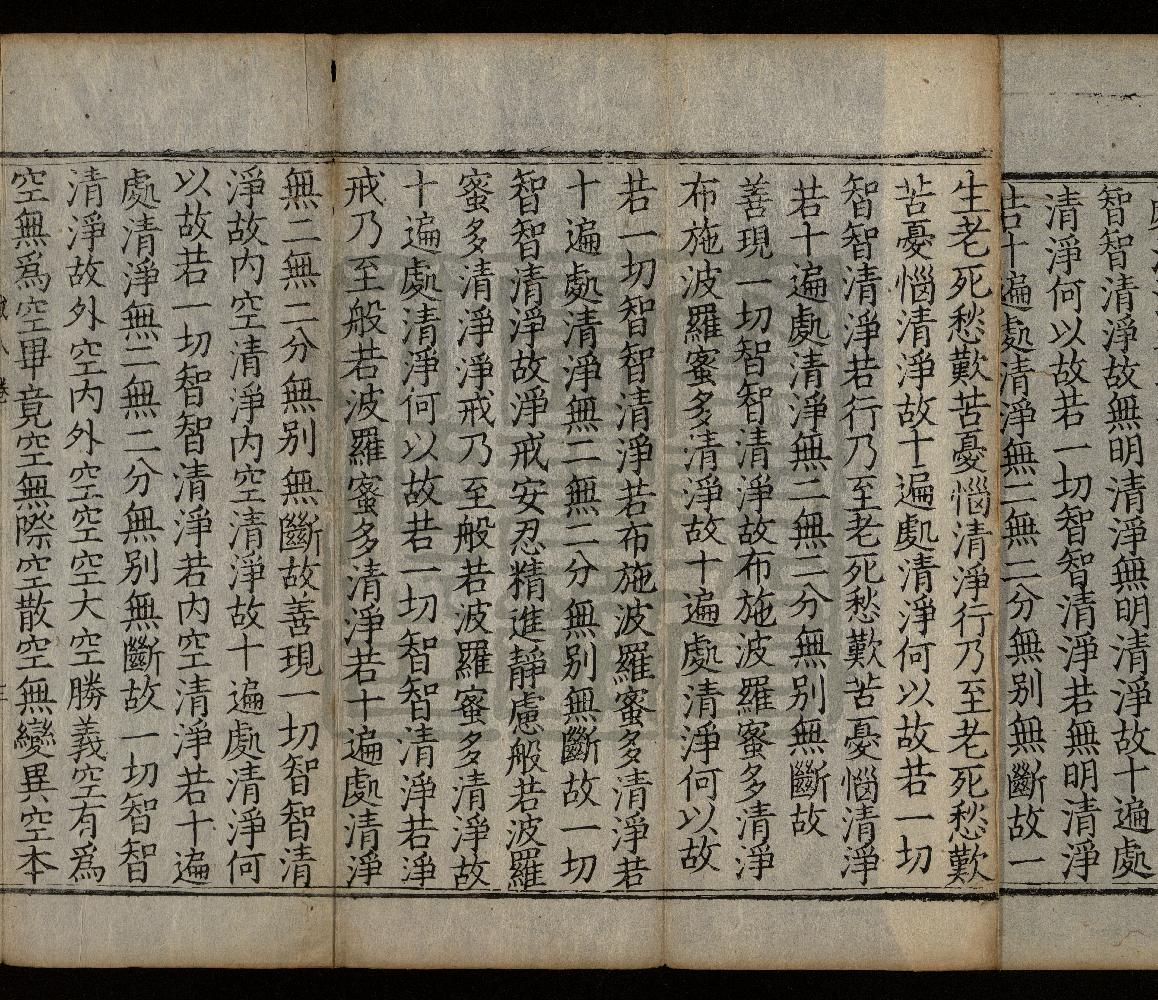 智智清淨故無明清淨無明清淨故十遍處
清淨何以故若一切智智清淨若無明清淨
若十遍處清淨無二無二分無別無斷故一
生老死愁歎苦憂惱清淨行乃至老死愁歎
苦憂惱清淨故十遍處清淨何以故若一切
智智清淨若行乃至老死愁歎苦憂惱清淨
若十遍處清淨無二無二分無別無斷故
善現一切智智清淨故布施波羅蜜多清淨
布施波羅蜜多清淨故十遍處清淨何以故
若一切智智清淨若布施波羅蜜多清淨若
十遍處清淨無二無二分無別無斷故一切
智智清淨故淨戒安忍精進靜慮般若波羅
蜜多清淨淨戒乃至般若波羅蜜多清淨故
十遍處清淨何以故若一切智智清淨若淨
戒乃至般若波羅蜜多清淨若十遍處清淨
無二無二分無別無斷故善現一切智智清
淨故內空清淨內空清淨故十遍處清淨何
以故若一切智智清淨若內空清淨若十遍
處清淨無二無二分無別無斷故一切智智
清淨故外空內外空空空大空勝義空有為
空無為空畢竟空無際空散空無變異空本